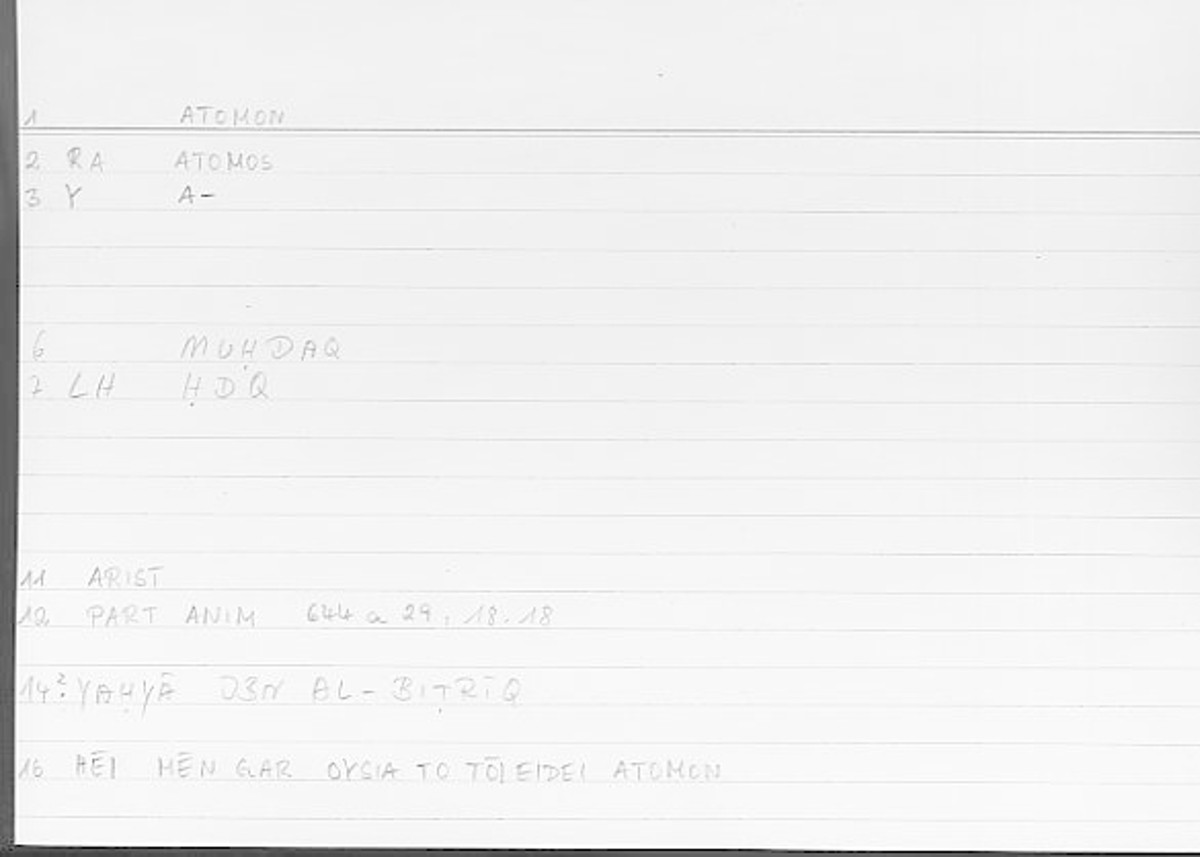 1 ATOMON
2 RA ATOMOS
3 Y A-
6 MUḤDAQ
7 LH ḤDQ
11 ARIST
12 PART ANIM 644 a 29; 18.18
14 ?YAḤYĀ IBN AL-BIṬRĪQ
16 HĒI MĒN GAR OYSIA TO TŌI EIDEI ATOMON